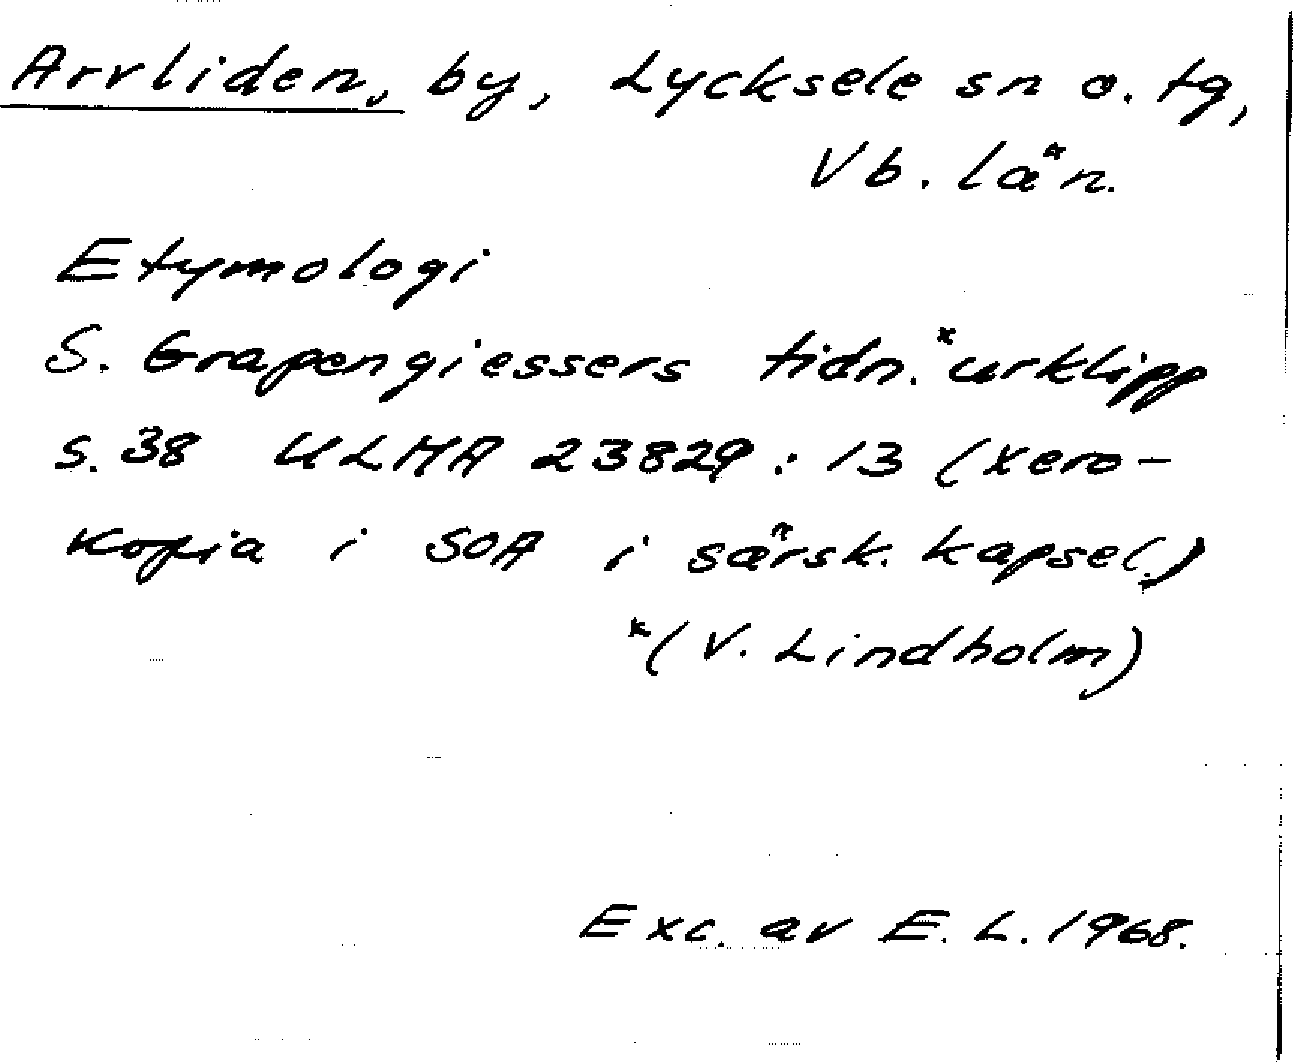 Arvliden, by, Lycksele sn o. tg,
Vb. län.
Etymologi
S. Grapengiessers tidn.*urklipp
s. 38 ULMA 23829:13 (xero-
kopia i SOA i särsk. kapsel.)
*(V. Lindholm)
Exc. av E. L. 1968.